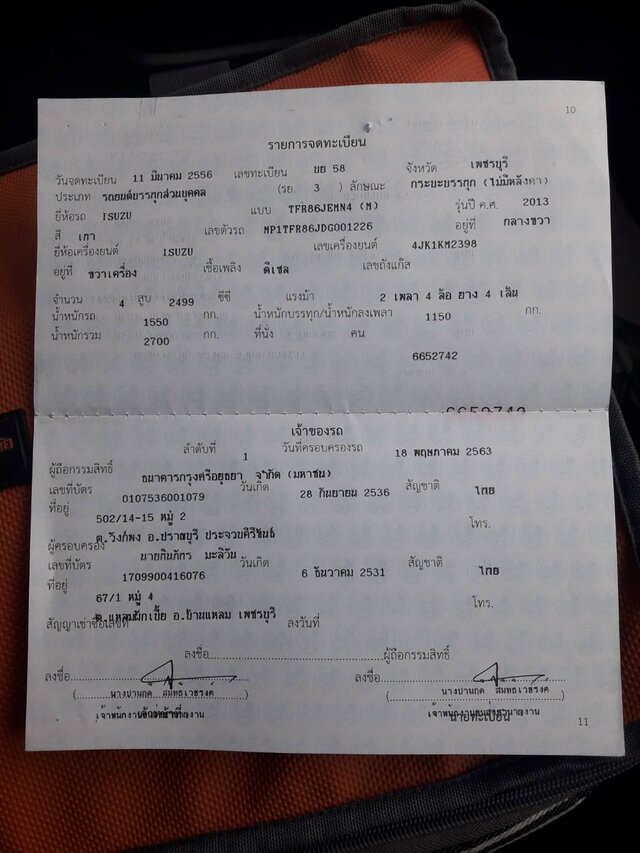 10
รายการจดทะเบียน
วันจดทะเบียน 11 มีนาคม 2556 เลขทะเบียน บย 58 จังหวัด เพชรบุรี
ประเภท รถยนต์บรรทุกส่วนบุคคล (รย. 3 ) ลักษณะ กระบะบรรทุก (ไม่มีหลังคา)
ยี่ห้อรถ ISUZU แบบ TFR86JEMN4 (M) รุ่นปี ค.ศ. 2013
สี เทา เลขตัวรถ MP1TFR86JDG001226 อยู่ที่ กลางขวา
ยี่ห้อเครื่องยนต์ ISUZU เลขเครื่องยนต์ 4JK1KM2398
อยู่ที่ ขวาเครื่อง เชื้อเพลิง ดีเซล เลขถังแก๊ส
จำนวน 4 สูบ 2499 ซีซี แรงม้า 2 เพลา 4 ล้อ ยาง 4 เส้น
น้ำหนักรถ 1550 กก. น้ำหนักบรรทุก/น้ำหนักลงเพลา 1150 กก.
น้ำหนักรวม 2700 กก. ที่นั่ง คน
6652742
6652742
เจ้าของรถ
ลำดับที่ 1 วันที่ครอบครองรถ 18 พฤษภาคม 2563
ผู้ถือกรรมสิทธิ์ ธนาคารกรุงศรีอยุธยา จำกัด (มหาชน)
เลขที่บัตร 0107536001079 วันเกิด 28 กันยายน 2536 สัญชาติ ไทย
ที่อยู่ 502/14-15 หมู่ 2 โทร.
ต.วังก์พง อ.ปราณบุรี ประจวบคีรีขันธ์
ผู้ครอบครอง นายกินภัทร มะลิวัน
เลขที่บัตร 1709900416076 วันเกิด 6 ธันวาคม 2531 สัญชาติ ไทย
ที่อยู่ 67/1 หมู่ 4 โทร.
ต.แหลมผักเบี้ย อ.บ้านแหลม เพชรบุรี
สัญญาเช่าซื้อเลขที่ ลงวันที่
ลงชื่อ ผู้ถือกรรมสิทธิ์
ลงชื่อ ลงชื่อ
เจ้าพนักงาน นายทะเบียน
11